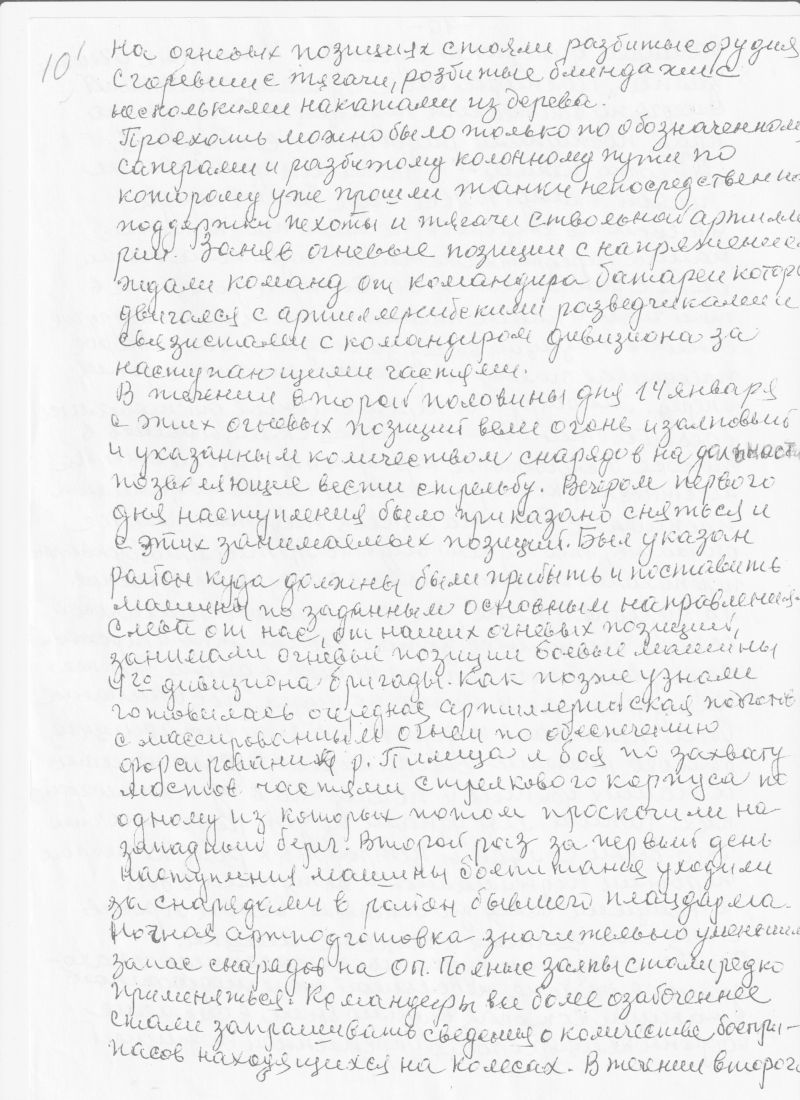 10'
На огневых позициях стояли разбитые орудия
сгоревшие тягачи, розбитые блиндажи с
несколькими накатами из дерева.
Проехать можно было только по обозначенном
саперами и разбитому колонному пути по
которому уже прошли танки непосредственно
поддержки пехоты и тягачи ствольной артилле
рии. Заняв огневые позиции с напряжением
ждали команд от командира батареи котор
двигался с артиллерийскими разведчиками и
связистами с командиром дивизиона за
наступающими частями.
В течении второй половины дня 14 января
с этих огневых позиций вели огонь и залповый
и указанным количеством снарядов на дальност
позволяющие вести стрельбу. Вечером первого
дня наступления было приказано сняться и
с этих занимаемых позиций. Был указан
район куда должны были прибыть и поставить
машины по заданным основным направления
Слева от нас, от наших огневых позиций,
занимали огневые позиции боевые машины
1го дивизиона бригады. Как позже узнали
готовилась очередная артиллерийская подготов
с массированным огнем по обеспечению
форсирования р. Пилица и боя по захвату
мостов частями стрелкового корпуса по
одному из которых потом проскочили на
западный берег. Второй раз за первый день
наступления машины боепитания уходили
за снарядами в район бывшего плацдарма.
Ночная артподготовка значительно уменьшил
запас снарядов на ОП. Полные залпы стали редко
применяться. Командиры все более озабоченнее
стали запрашивать сведения о количестве боепри-
пасов находящихся на колесах. В течении второг